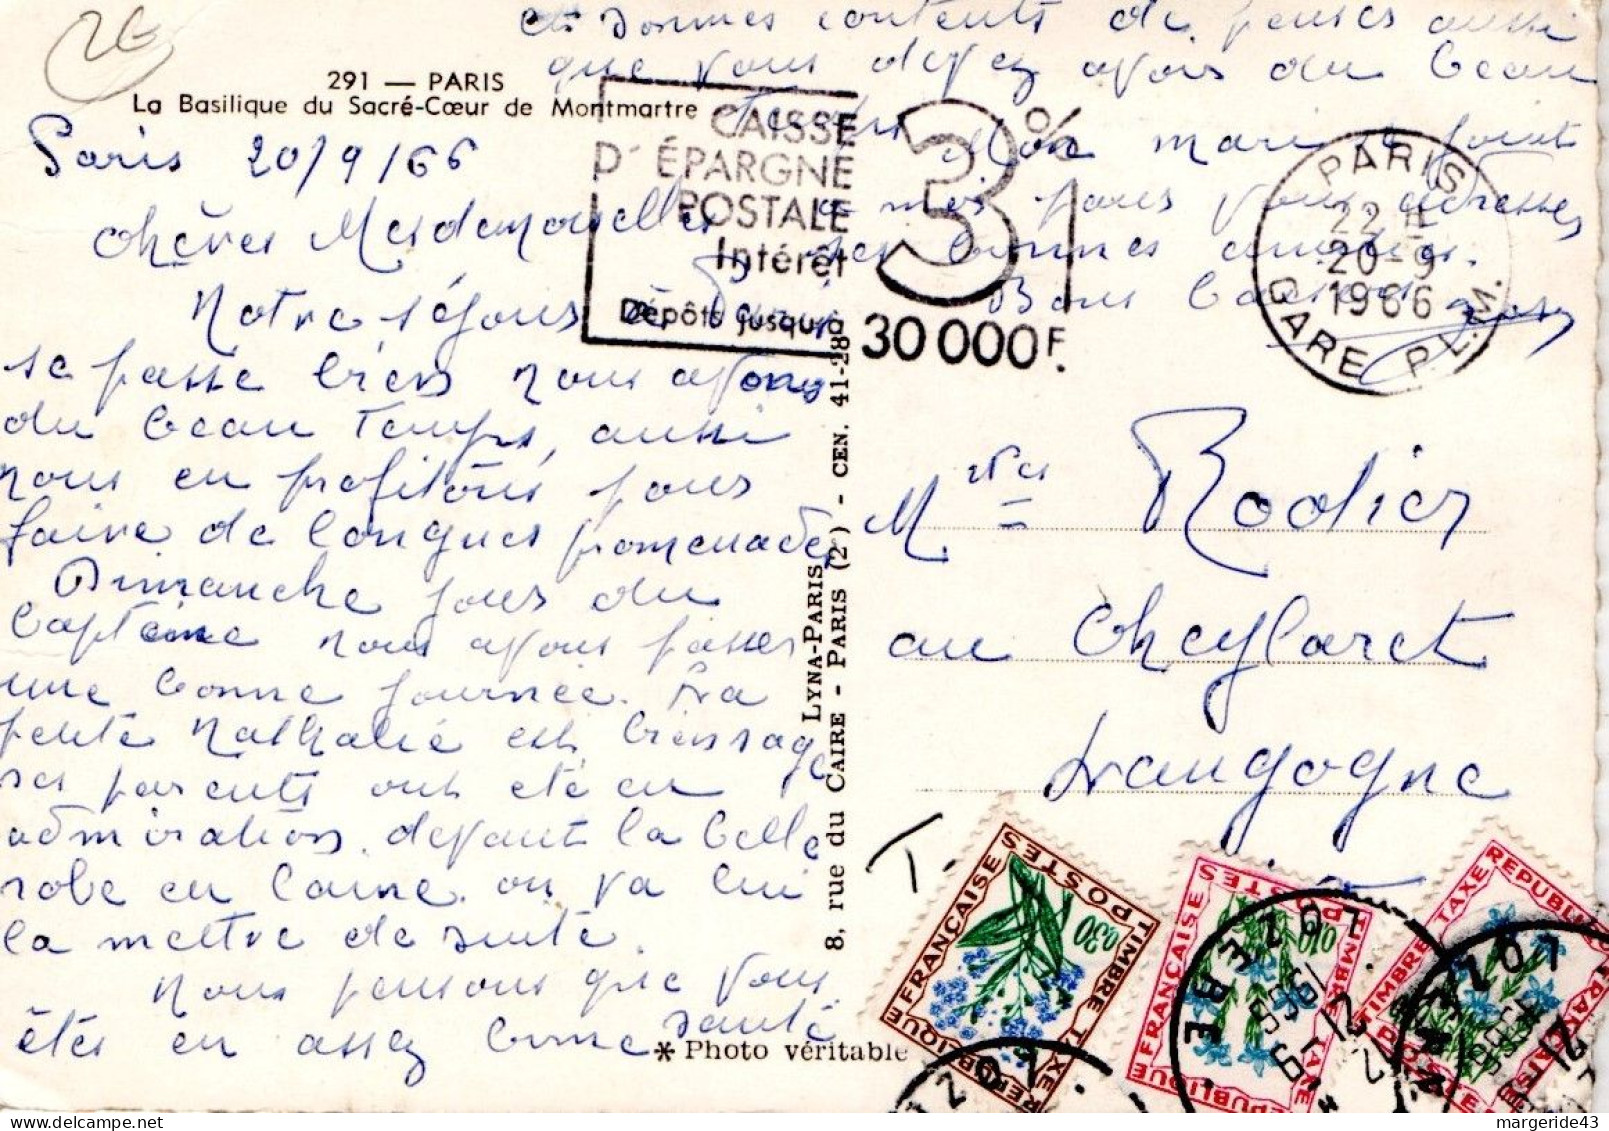 291 — PARIS
La Basilique du Sacré-Cœur de Montmartre
Paris 20/9/66
Chères Mesdemoiselles
Notre séjour à Paris
se passe bien nous avons
du beau temps, aussi
nous en profitons pour
faire de longues promenades
Dimanche jour du
Baptême nous avons passer
une bonne journée. La
petite Nathalie est bien sage
ses parents ont été en
admiration devant la belle
robe en laine. on va lui
la mettre de suite.
Nous pensons que vous
êtes en assez bonne santé
et sommes contents de penser aussi
que vous devez avoir du beau
temps. Mon mari se joint
à moi pour vous adresser
ses bonnes amitiés.
Bons baisers
CAISSE
D'ÉPARGNE
POSTALE
Intérêt
3%
Dépôts jusqu'à
30 000 F.
PARIS
22 H
20-9
1966
GARE P.L.M.
LYNA-PARIS
8, rue du CAIRE - PARIS (2e) - CEN. 41-28
* Photo véritable
M.elles Rodier
au Cheylaret
Langogne
T.
RÉPUBLIQUE FRANÇAISE
0,30
POSTES
TIMBRE TAXE
RÉPUBLIQUE FRANÇAISE
0,10
POSTES
TIMBRE TAXE
RÉPUBLIQUE FRANÇAISE
POSTES
TIMBRE TAXE
LOZERE
21-9
1966
LOZERE
21
1966
LOZ
margeride43